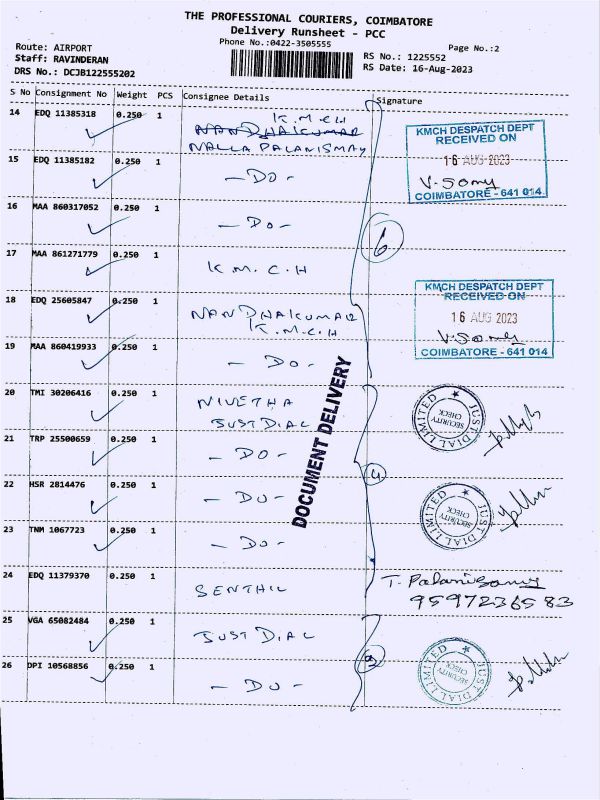 THE PROFESSIONAL COURIERS, COIMBATORE
Delivery Runsheet - PCC
Phone No.:0422-3505555
Page No.:2
Route: AIRPORT
Staff: RAVINDERAN
DRS No.: DCJB122555202
RS No.: 1225552
RS Date: 16-Aug-2023
S No Consignment No Weight PCS Consignee Details Signature
14 EDQ 11385318 0.250 1 K.M.C.H
NANDHAKUMAR
NALLA PALANISMAY
KMCH DESPATCH DEPT
RECEIVED ON
16 AUG 2023
V. Somy
COIMBATORE - 641 014.
15 EDQ 11385182 0.250 1 - DO -
16 MAA 860317052 0.250 1 - DO -
6
17 MAA 861271779 0.250 1 K.M.C.H
18 EDQ 25605847 0.250 1 NANDHAKUMAR
K.M.C.H
KMCH DESPATCH DEPT
RECEIVED ON
16 AUG 2023
V. Somy
COIMBATORE - 641 014
19 MAA 860419933 0.250 1 - DO -
DOCUMENT DELIVERY
20 TMI 30206416 0.250 1 NIVETHA
JUST DIAL
JUST DIAL LIMITED
SECURITY
CHECK
21 TRP 25500659 0.250 1 - DO -
4
22 HSR 2814476 0.250 1 - DO -
JUST DIAL LIMITED
SECURITY
CHECK
23 TNM 1067723 0.250 1 - DO -
24 EDQ 11379370 0.250 1 SENTHIL
T. Palanisamy
9597236583
25 VGA 65082484 0.250 1 JUST DIAL
26 DPI 10568856 0.250 1 - DO -
JUST DIAL LIMITED
SECURITY
CHECK